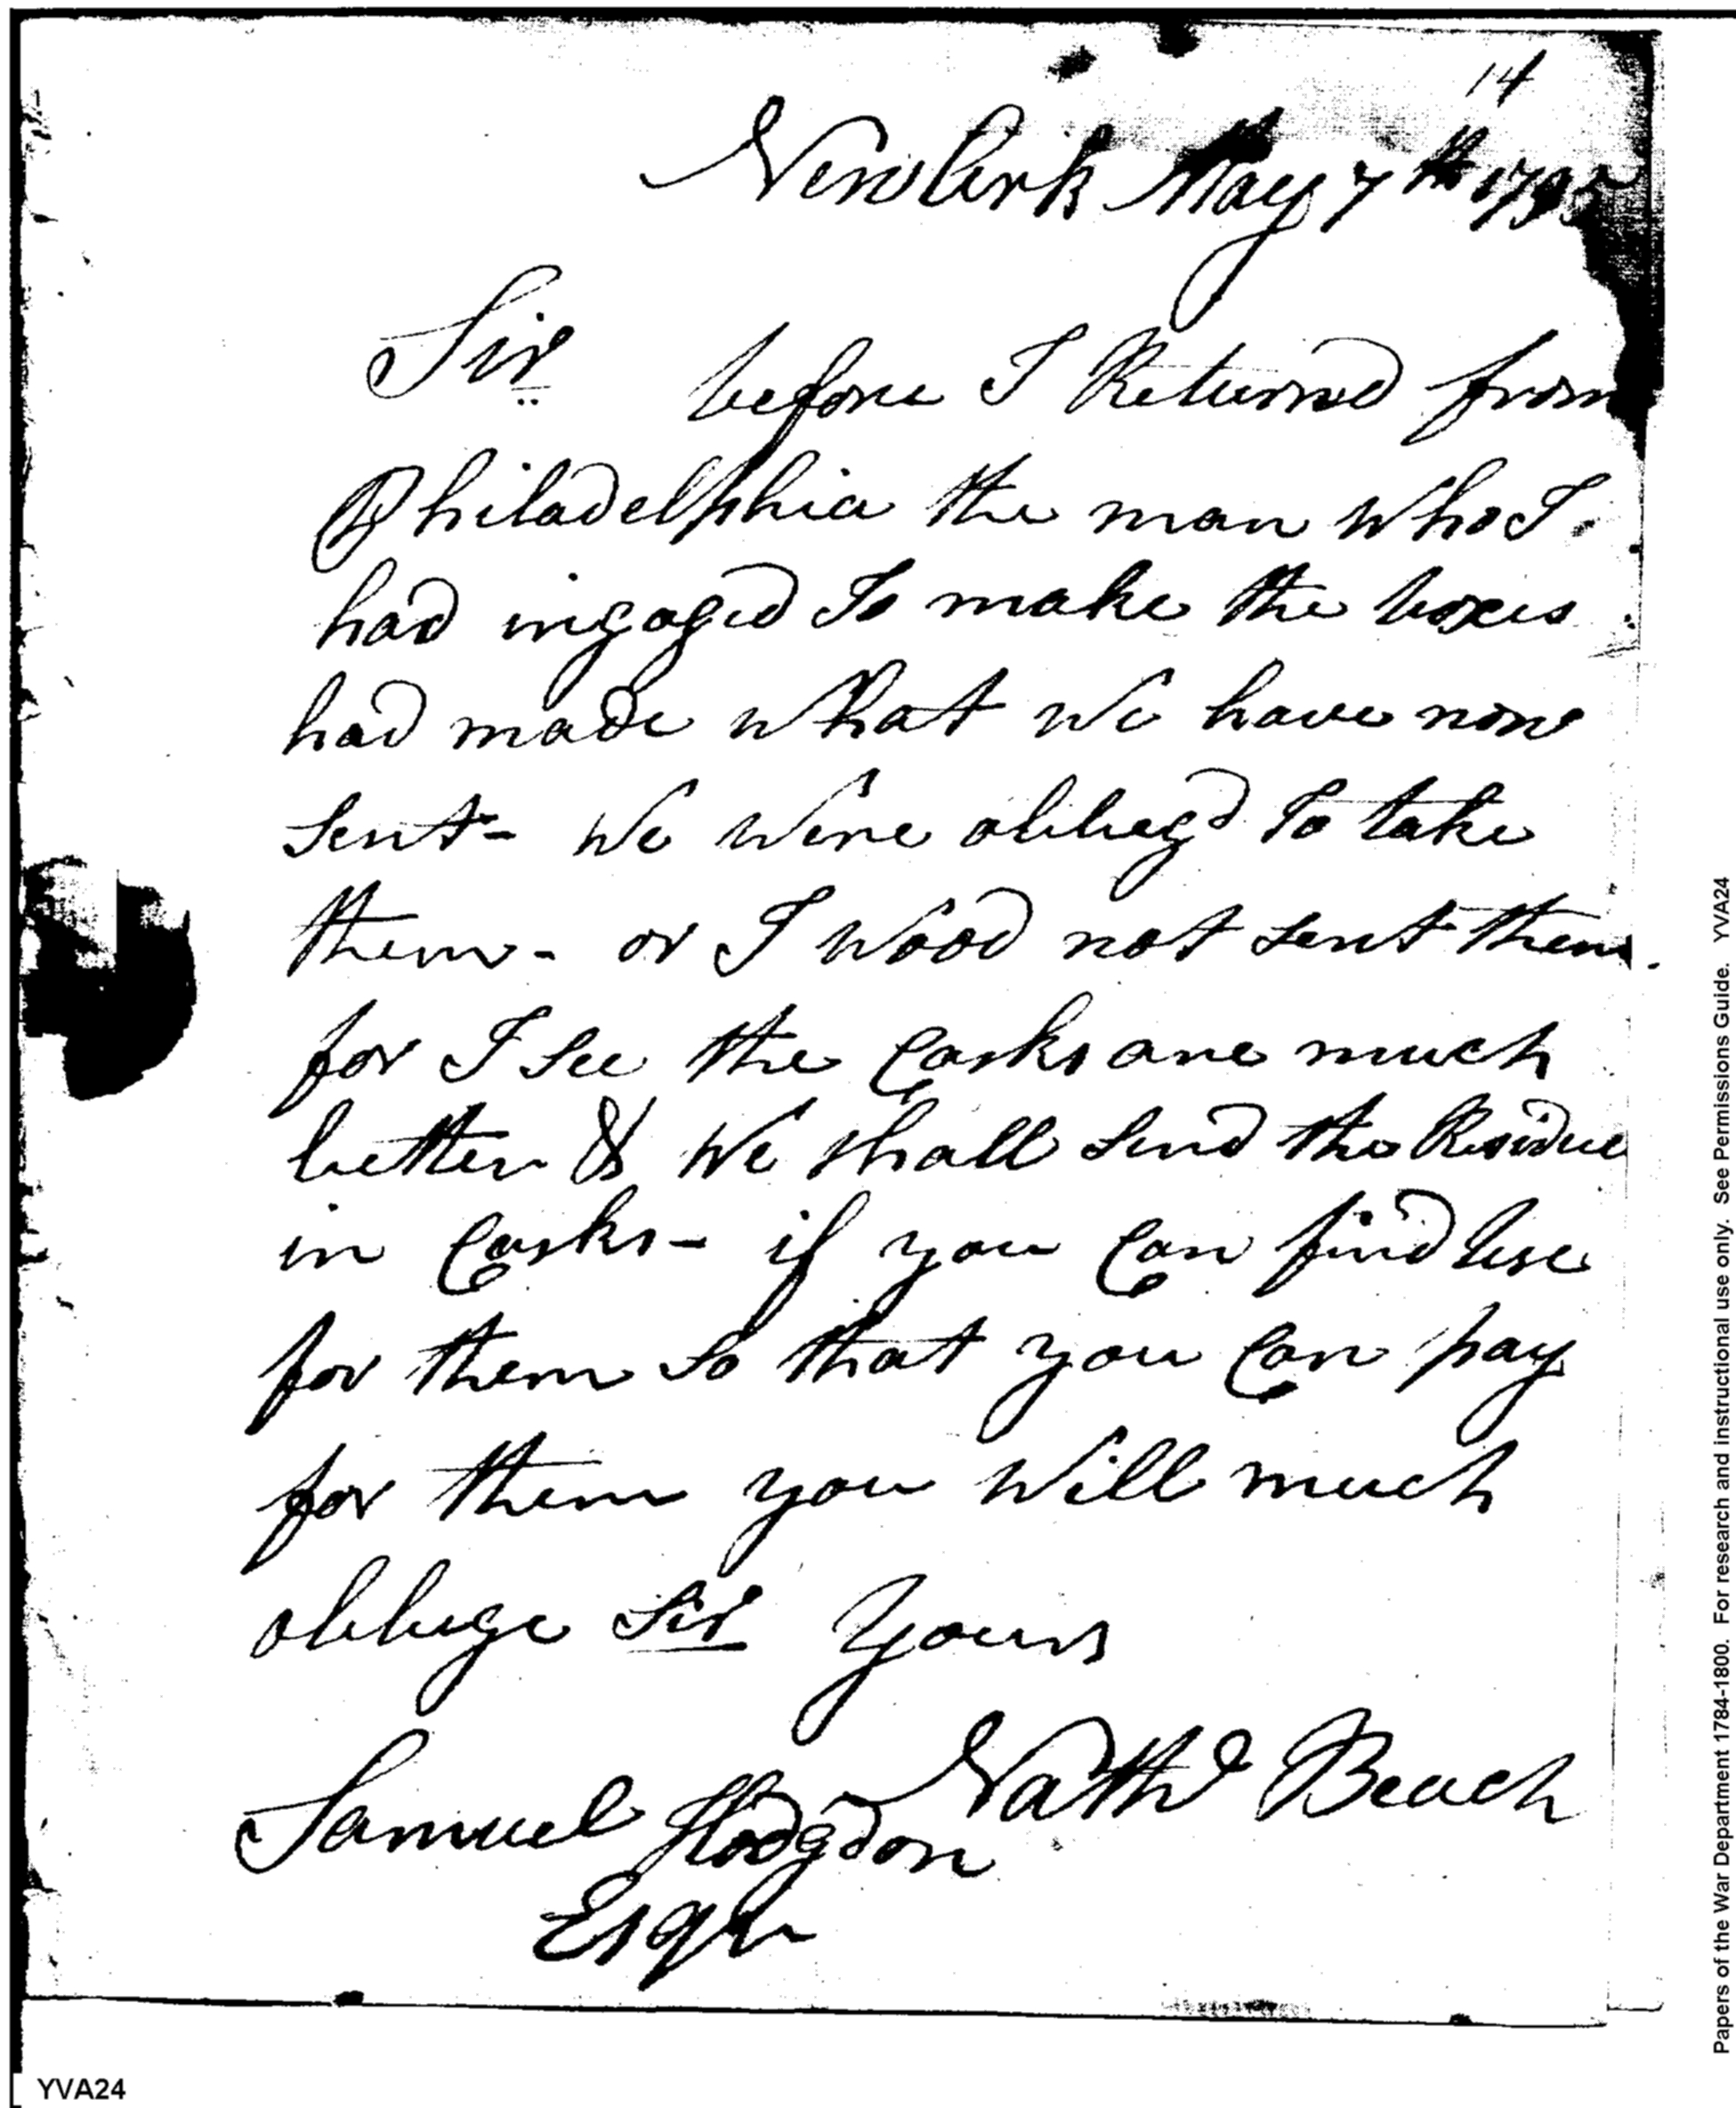 14
Newark May 7th 1795
Sir before I Returnd from
Philadelphia the man who I
had ingaged To make the boxes
had made what we have now
sent - We Were obliegd To take
them - or I Wood not sent them
for I see the Casks are much
better & We shall send the Residue
in Casks - if you Can find use
for them so that you Can pay
for them you Will much
obliege Sir Yours
Nathl Beach
Samuel Hodgdon
Esqr
Papers of the War Department 1784-1800. For research and instructional use only. See Permissions Guide. YVA24
YVA24